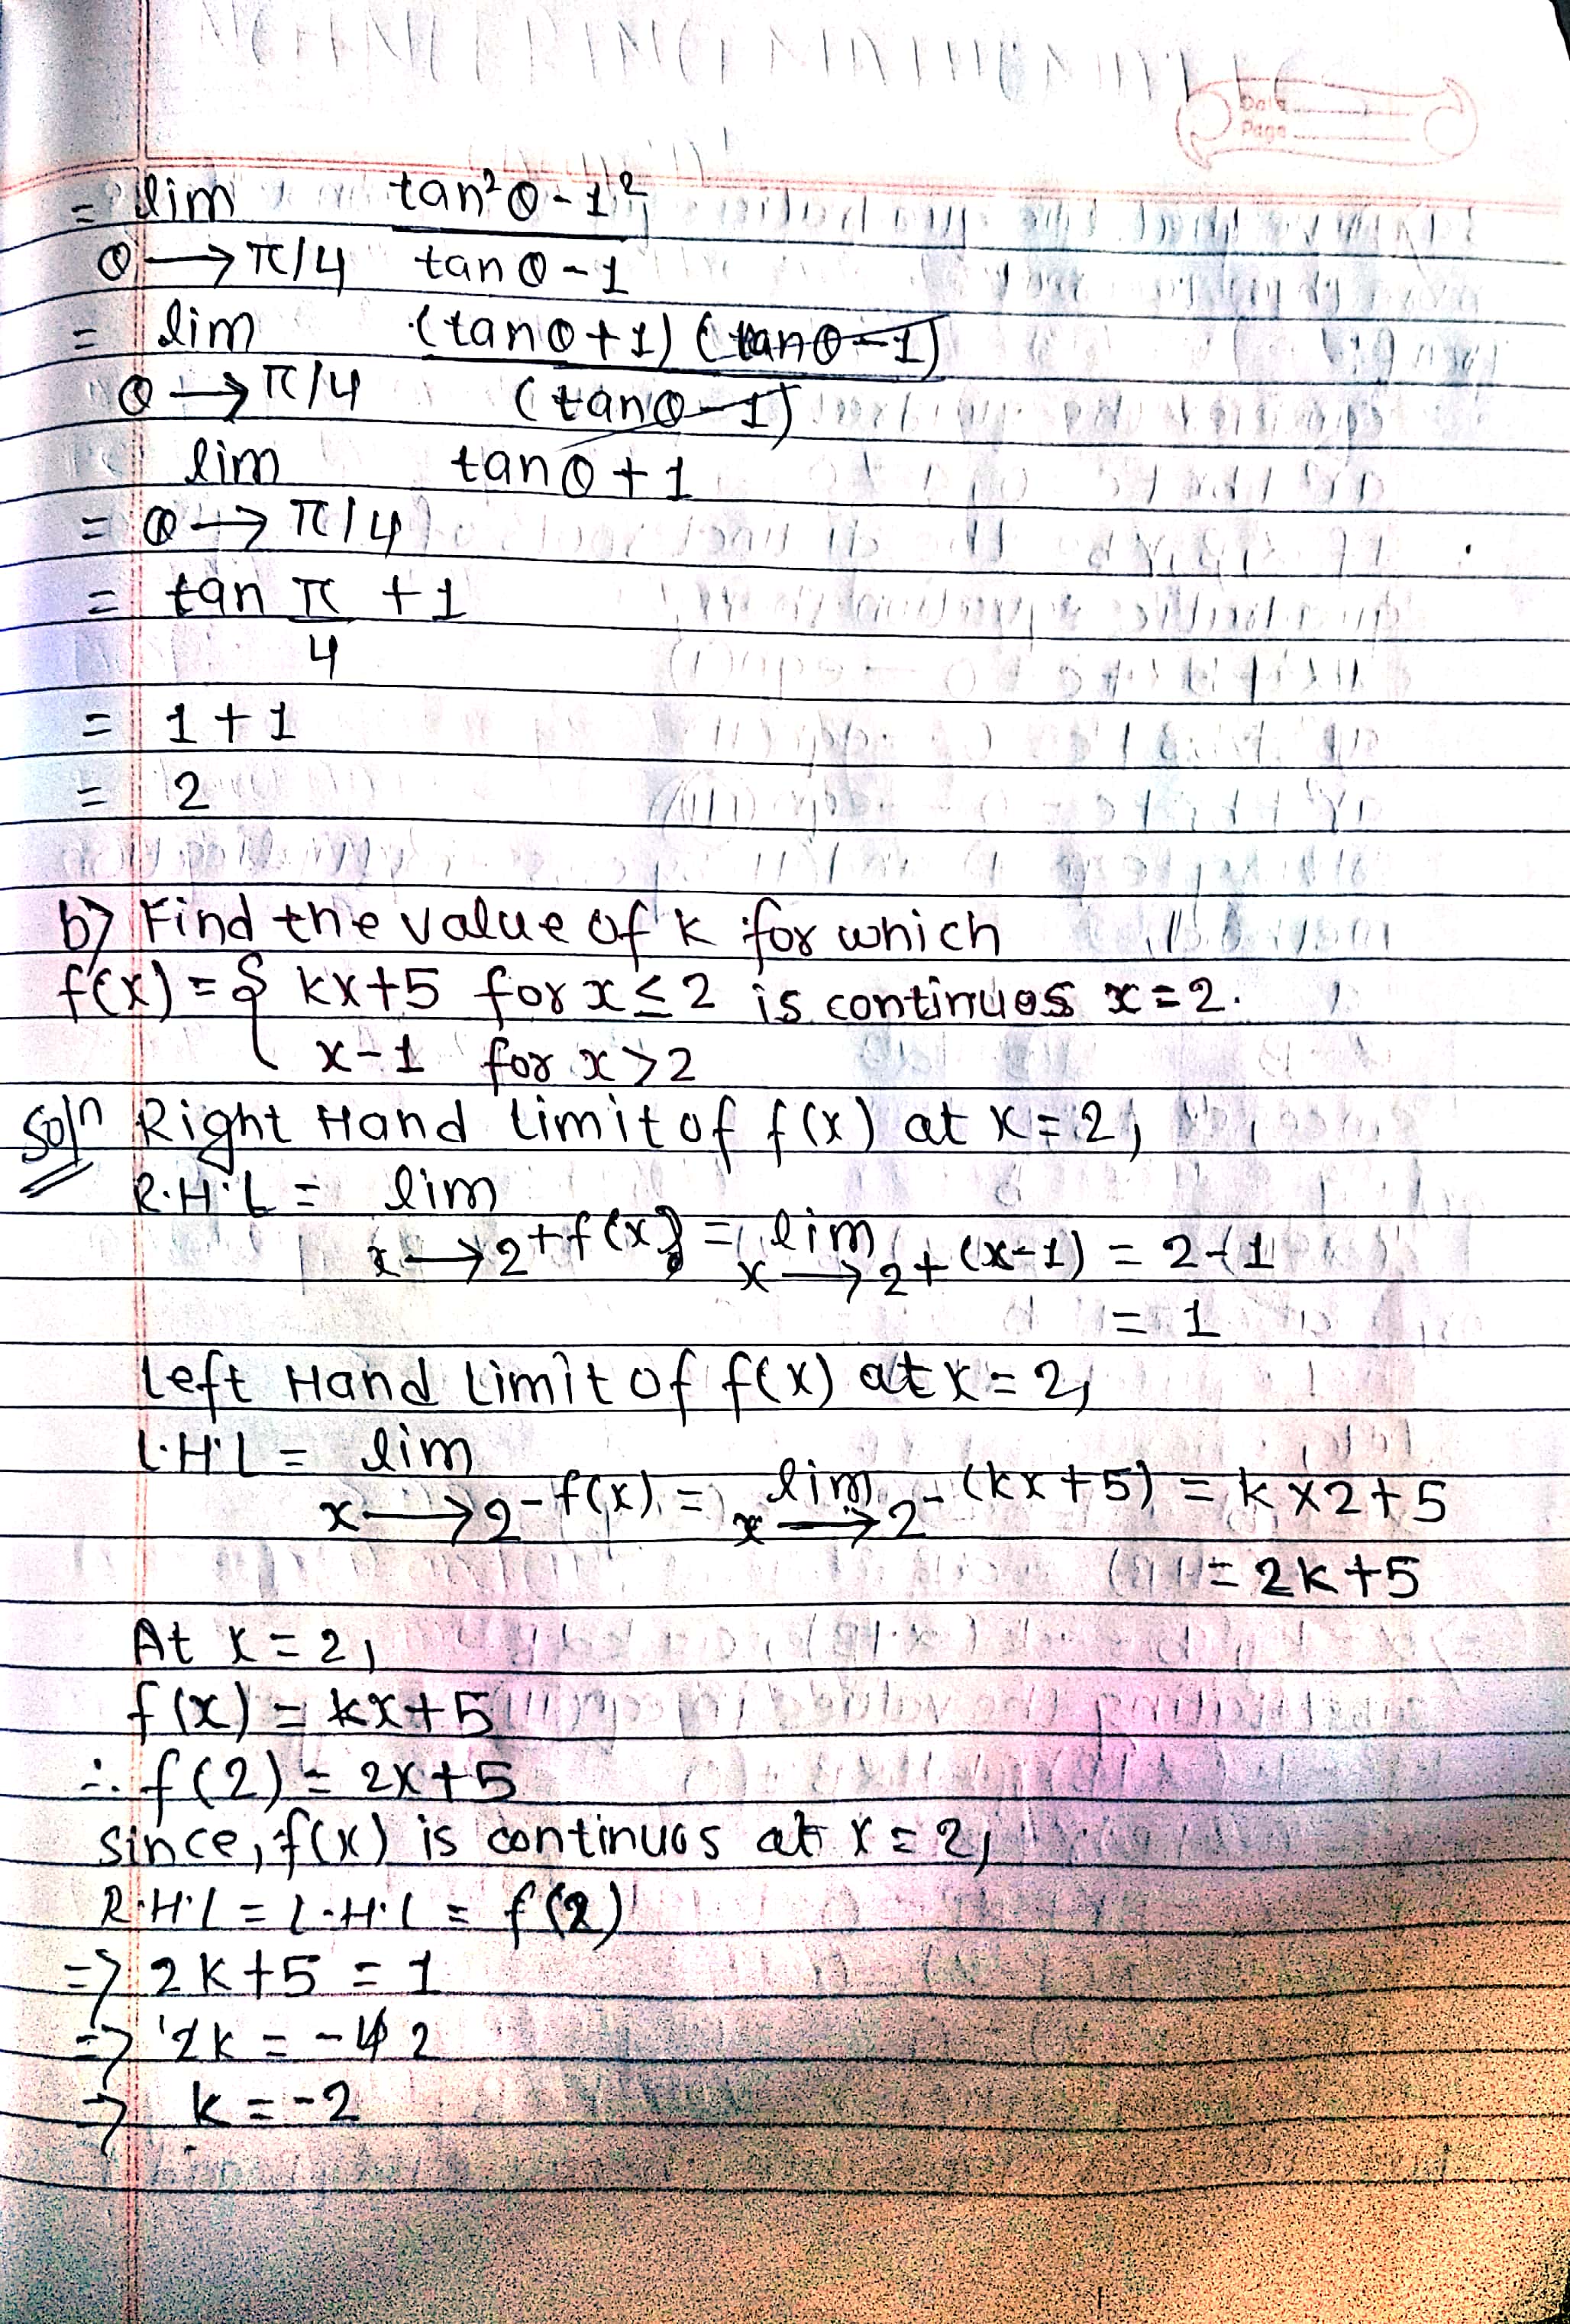 Date
Page
= lim tan²θ-1²
θ→π/4 tanθ-1
= lim (tanθ+1) (tanθ-1)
θ→π/4 (tanθ-1)
lim tanθ+1
= θ→π/4
= tan π +1
4
= 1+1
= 2
b) Find the value of k for which
f(x) = { kx+5 for x≤2 is continuos x=2.
x-1 for x>2
Soln Right Hand Limit of f(x) at x=2,
R.H.L = lim
x→2+ f(x) = lim x→2+ (x-1) = 2-1
= 1
Left Hand Limit of f(x) at x=2,
L.H.L = lim
x→2- f(x) = lim x→2- (kx+5) = k×2+5
= 2k+5
At x=2,
f(x) = kx+5
∴ f(2) = 2k+5
Since, f(x) is continuos at x=2,
R.H.L = L.H.L = f(2)
=> 2k+5 = 1
=> 2k = -4 2
=> k = -2